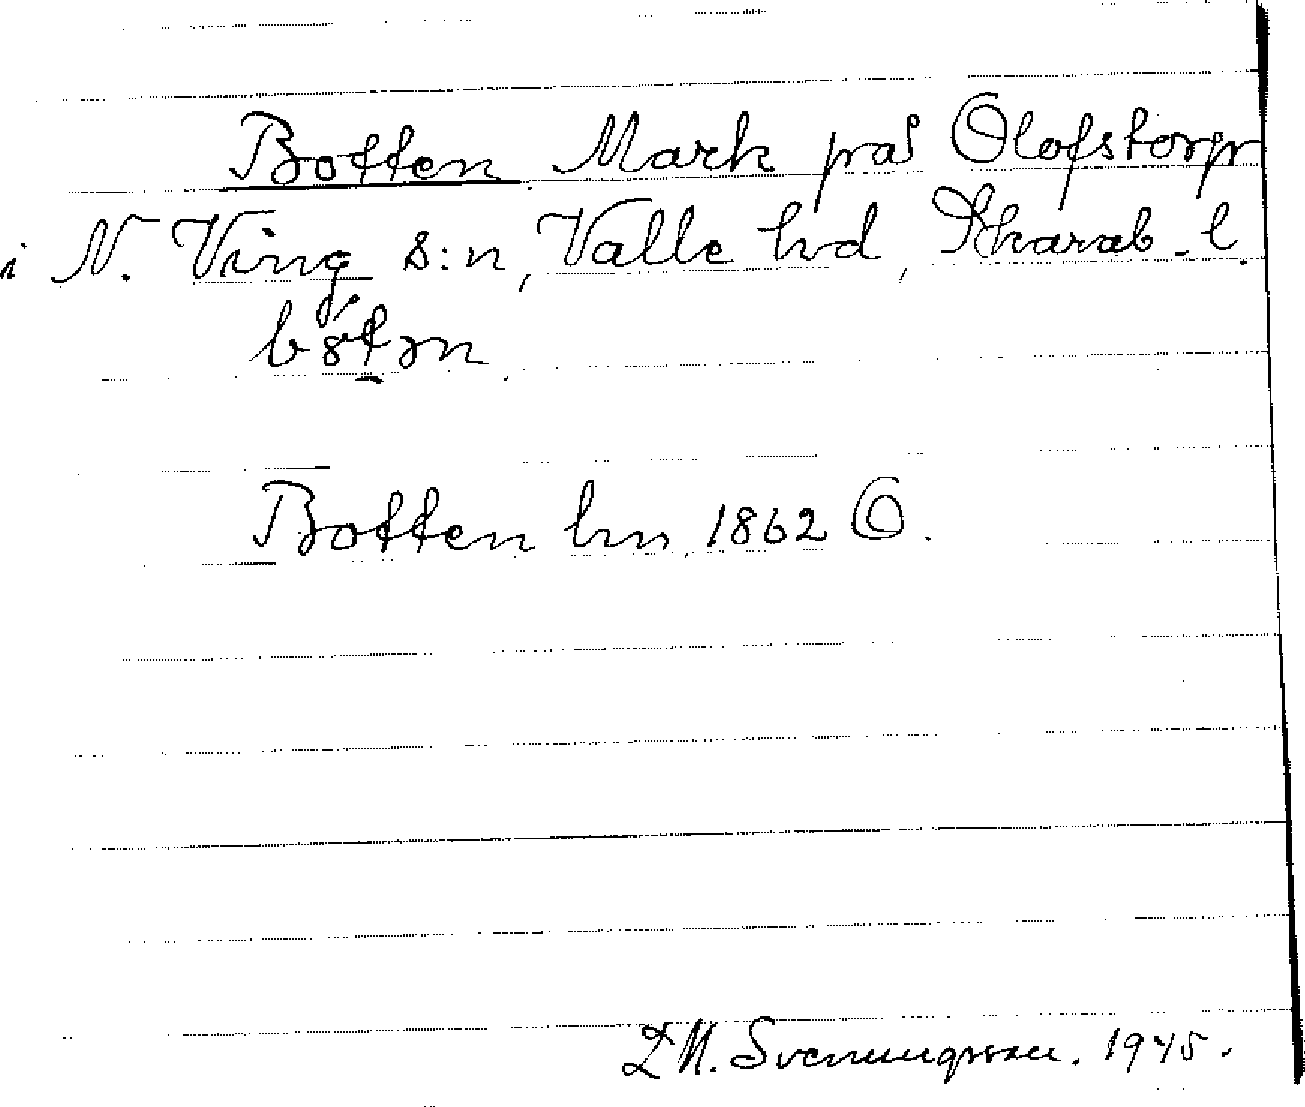 Botten Mark på Olofstorp
i N. Ving s:n, Valle hd, Skarab. l.
Botten hm 1862 Ö.
D.M. Svenningsson. 1945.